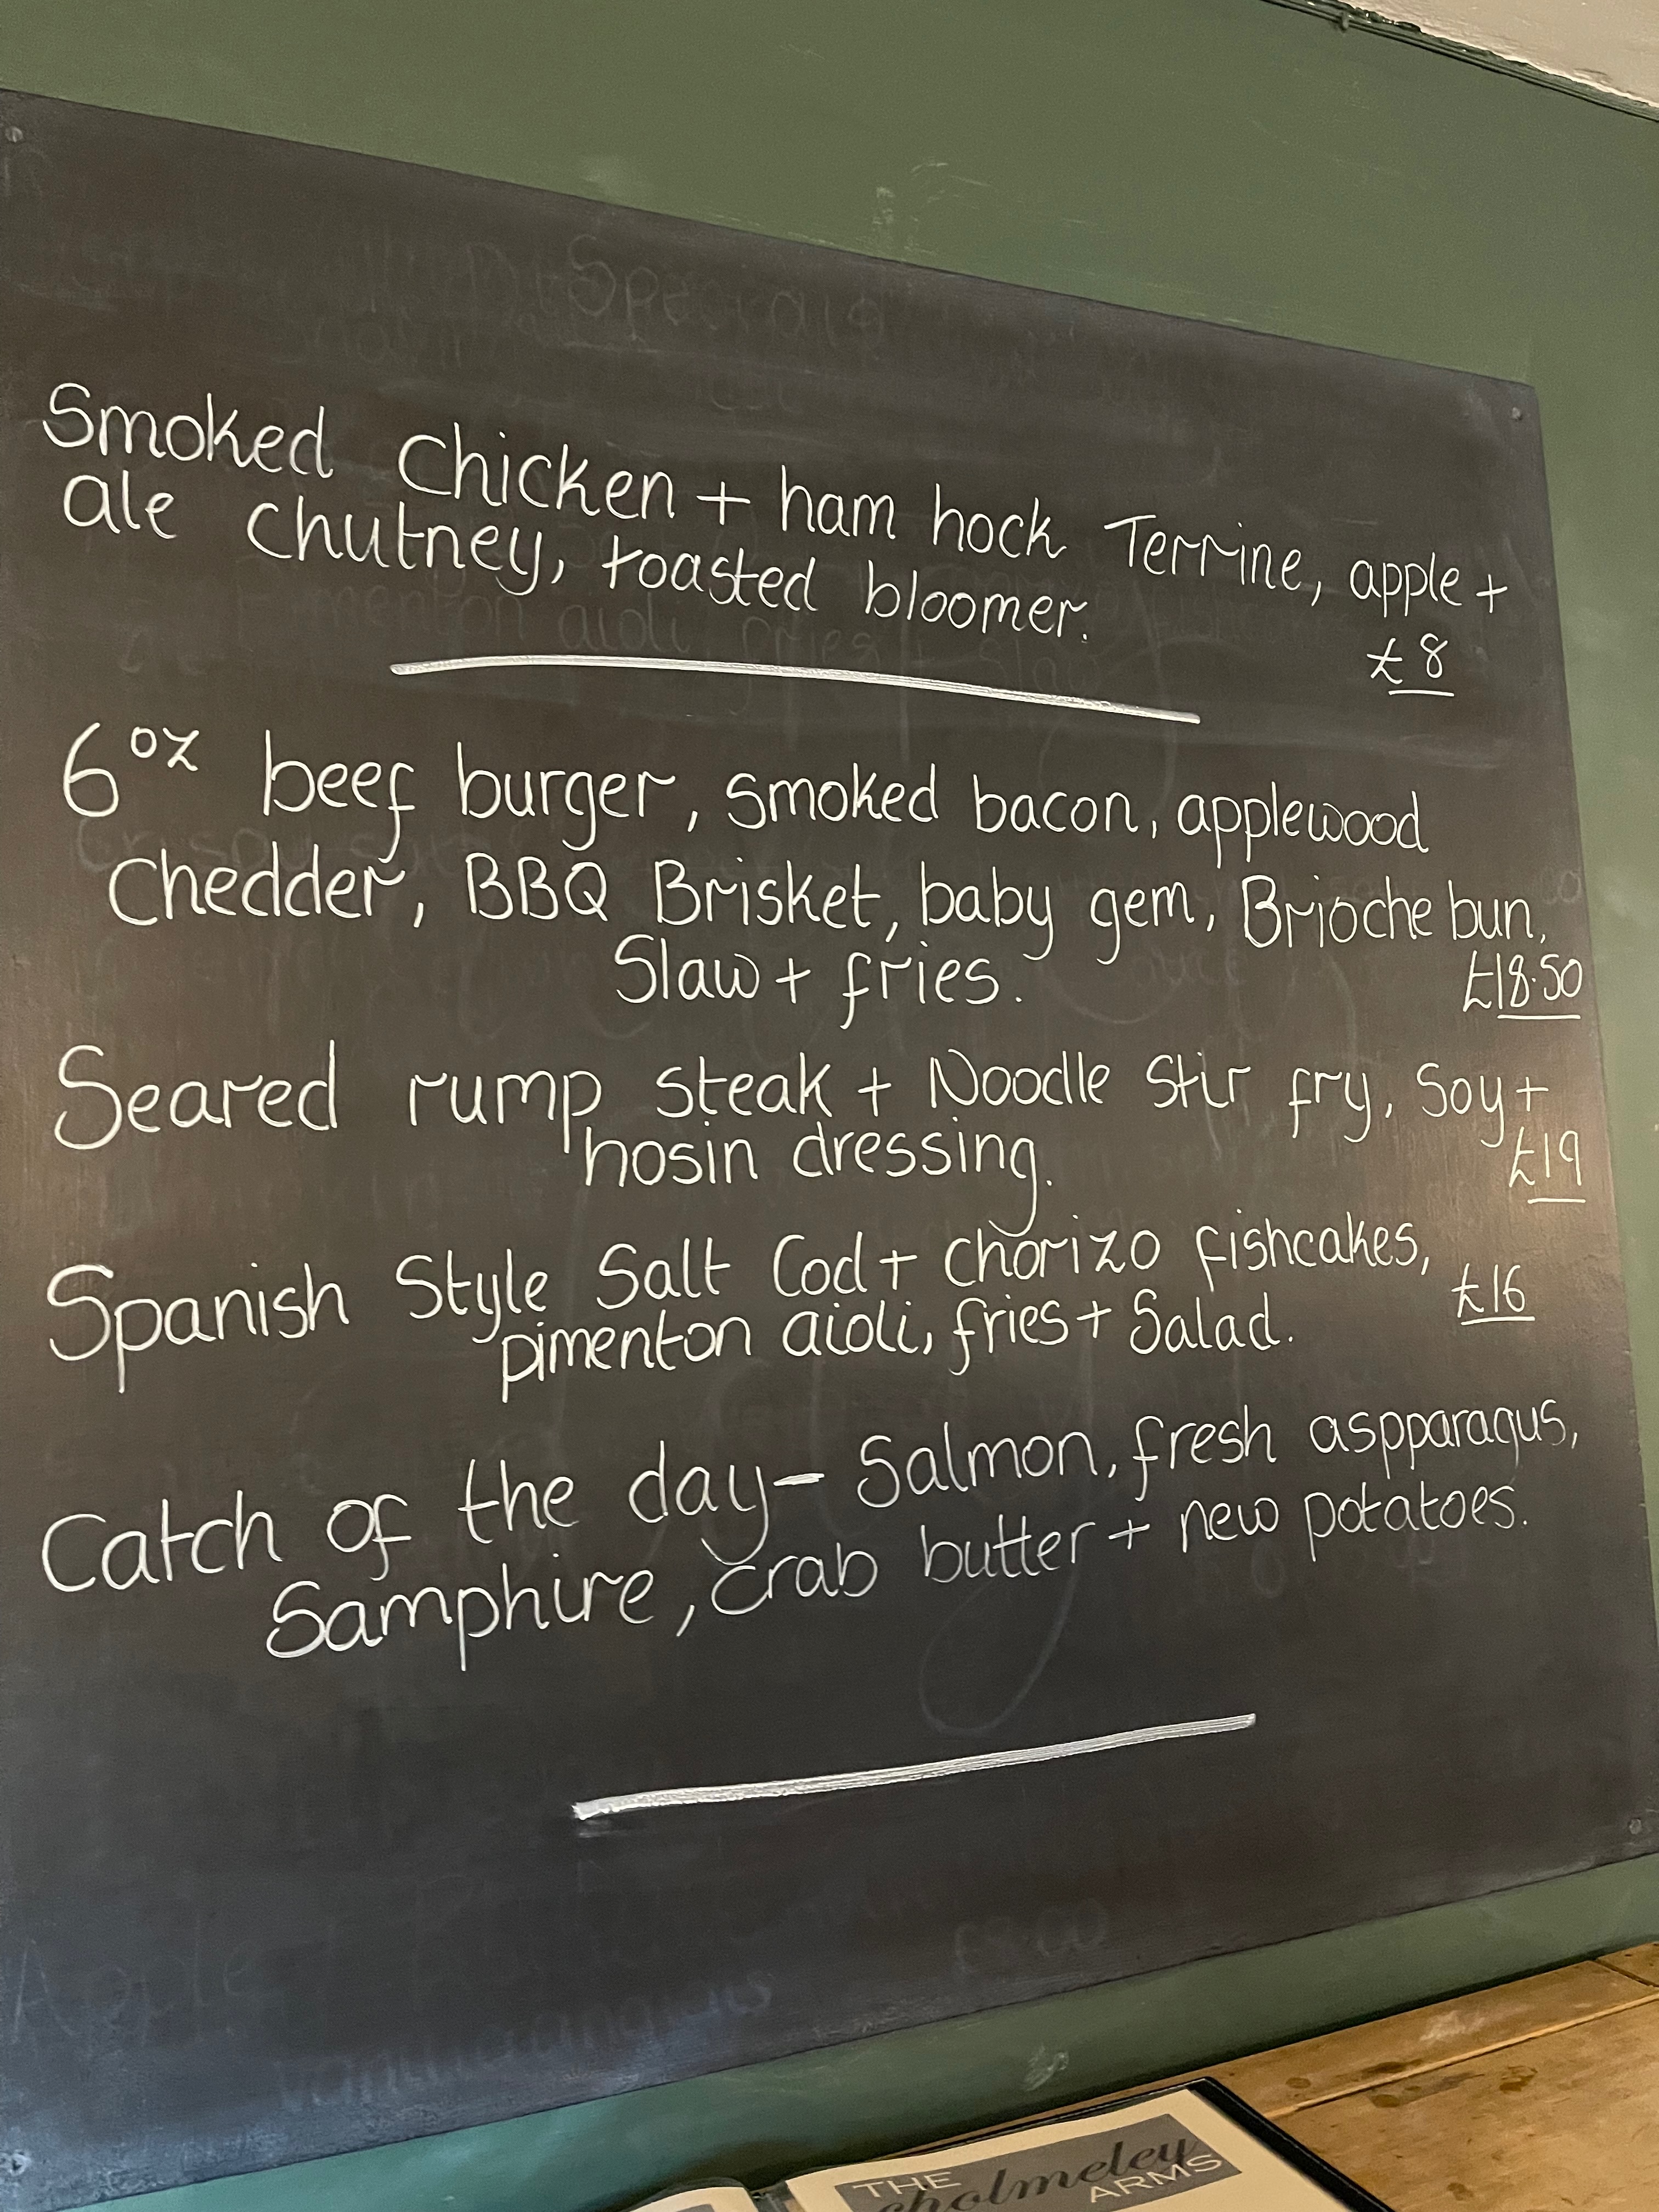 Specials
Smoked Chicken + ham hock Terrine, apple +
ale chutney, toasted bloomer.
£8
6oz beef burger, smoked bacon, applewood
Chedder, BBQ Brisket, baby gem, Brioche bun,
Slaw + fries.
£18.50
Seared rump steak + Noodle Stir fry, Soy +
hosin dressing.
£19
Spanish Style Salt Cod + Chorizo fishcakes,
pimenton aioli, fries + Salad.
£16
Catch of the day - Salmon, fresh aspparagus,
Samphire, crab butter + new potatoes.
THE
Cholmeley
ARMS